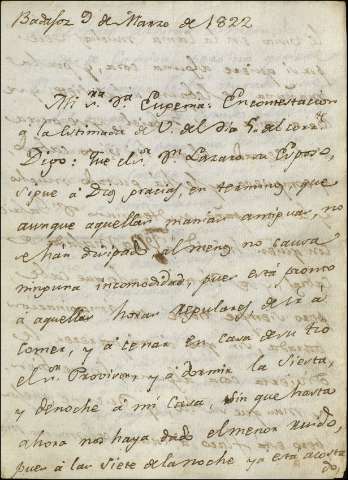 Badajoz 9 de Marzo de 1822
Mi Sra. Da. Eugenia: En contestacion
a la Estimada de V. del dia 5. del corrte.
Digo: que el Sr. Dn. Lazaro su Esposo,
sigue á Dios gracias, en terminos, que
aunque aquellas manias antiguas, no
se han disipado, al menos no causa
ninguna incomodidad, pues está pronto
á aquellas horas regulares de ir á
comer, y á cenar en casa de su tio
el Sr. Provisor, y á dormir la siesta,
y de noche á mi casa, sin que hasta
ahora nos haya dado el menor ruido,
pues á las siete de la noche ya está acosta
do,